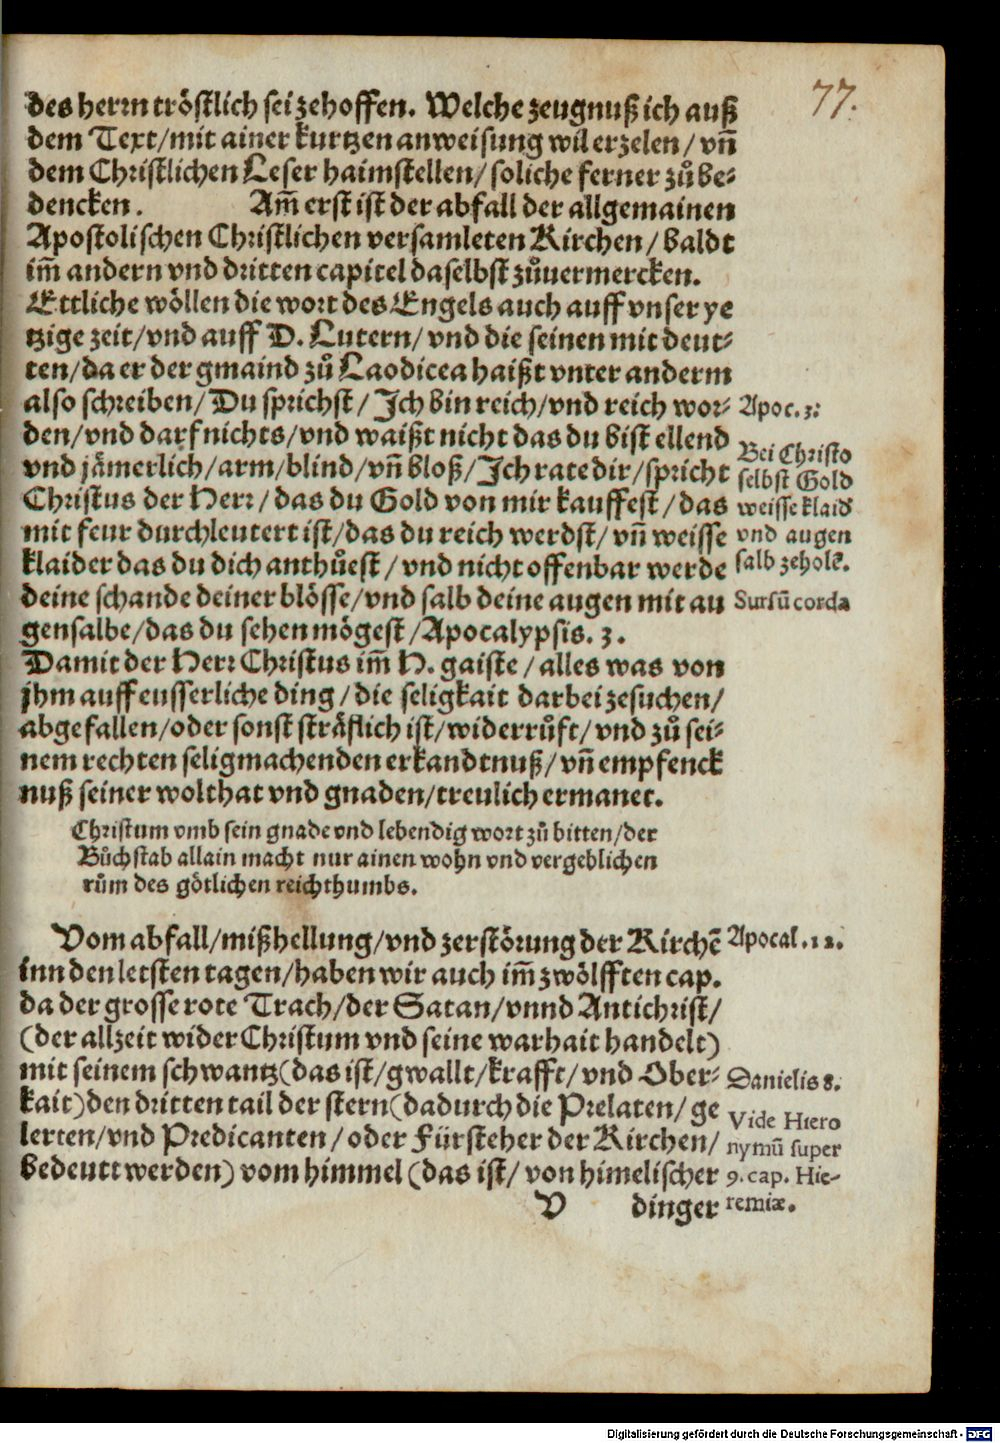 77.
des herrn tröstlich sei zehoffen. Welche zeugnuß ich auß
dem Text/mit ainer kurtzen anweisung wil erzelen/ vñ
dem Christlichen Leser haimstellen/ soliche ferner zů be-
dencken. Am̃ erst ist der abfall der allgemainen
Apostolischen Christlichen versamleten Kirchen/ baldt
im̃ andern vnd dritten capitel daselbst zůuermercken.
Ettliche wöllen die wort des Engels auch auff vnser ye
tzige zeit/vnd auff D. Lutern/ vnd die seinen mit deut-
ten/da er der gmaind zů Laodicea haißt vnter anderm
also schreiben/ Du sprichst/ Ich bin reich/vnd reich wor-
Apoc. 3:
den/vnd darf nichts/vnd waißt nicht das du bist ellend
Bei Christo
vnd jämerlich/arm/blind/vñ bloß/Ich rate dir/spricht
selbst Gold
Christus der Herr/das du Gold von mir kauffest/das
weisse klaid
mit feur durchleutert ist/das du reich werdst/ vñ weisse
vnd augen
klaider das du dich anthůest/ vnd nicht offenbar werde
salb zeholẽ.
deine schande deiner blösse/vnd salb deine augen mit au
Sursũ corda
gensalbe/das du sehen mögest/Apocalypsis. 3.
Damit der Herr Christus im̃ H. gaiste/alles was von
jhm auff eusserliche ding/die seligkait darbei zesuchen/
abgefallen/oder sonst sträflich ist/widerrůft/ vnd zů sei-
nem rechten seligmachenden erkandtnuß/vñ empfenck
nuß seiner wolthat vnd gnaden/treulich ermanet.
Christum vmb sein gnade vnd lebendig wort zů bitten/der
Bůchstab allain macht nur ainen wohn vnd vergeblichen
rům des götlichen reichthumbs.
Vom abfall/mißhellung/vnd zerstörung der Kirchẽ
Apocal. 12.
inn den letsten tagen/haben wir auch im̃ zwölfften cap.
da der grosse rote Trach/der Satan/vnnd Antichrist/
(der allzeit wider Christum vnd seine warhait handelt)
mit seinem schwantz(das ist/gwallt/krafft/vnd Ober-
Danielis 8.
kait)den dritten tail der stern(dadurch die Prelaten/ ge
Vide Hiero
lerten/vnd Predicanten/oder Fürsteher der Kirchen/
nymũ super
bedeutt werden) vom himmel (das ist/ von himelischer
9. cap. Hie-
remiæ.
V dinger
Digitalisierung gefördert durch die Deutsche Forschungsgemeinschaft - DFG